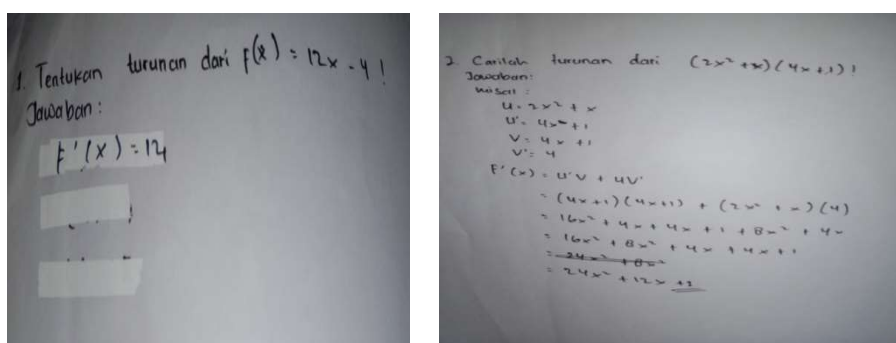 1. Tentukan turunan dari F(x) = 12x - 4 !
Jawaban :
F'(x) = 12
2. Carilah turunan dari (2x² + x) (4x + 1) !
Jawaban :
Misal :
U = 2x² + x
U' = 4x + 1
V = 4x + 1
V' = 4
F'(x) = U'V + UV'
= (4x + 1) (4x + 1) + (2x² + x) (4)
= 16x² + 4x + 4x + 1 + 8x² + 4x
= 16x² + 8x² + 4x + 4x + 1
= 24x² + 8x²
= 24x² + 12x + 1